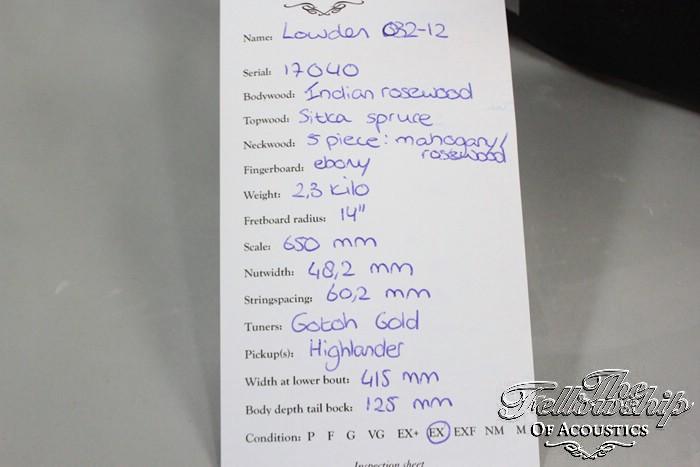 Name: Lowden O32-12
Serial: 17040
Bodywood: Indian rosewood
Topwood: Sitka spruce
Neckwood: 5 piece: mahogany/
rosewood
Fingerboard: ebony
Weight: 2,3 kilo
Fretboard radius: 14"
Scale: 650 mm
Nutwidth: 48,2 mm
Stringspacing: 60,2 mm
Tuners: Gotoh Gold
Pickup(s): Highlander
Width at lower bout: 415 mm
Body depth tail bock: 125 mm
Condition: P F G VG EX+ EX EXF NM M
Inspection sheet
The
Fellowship
OF ACOUSTICS